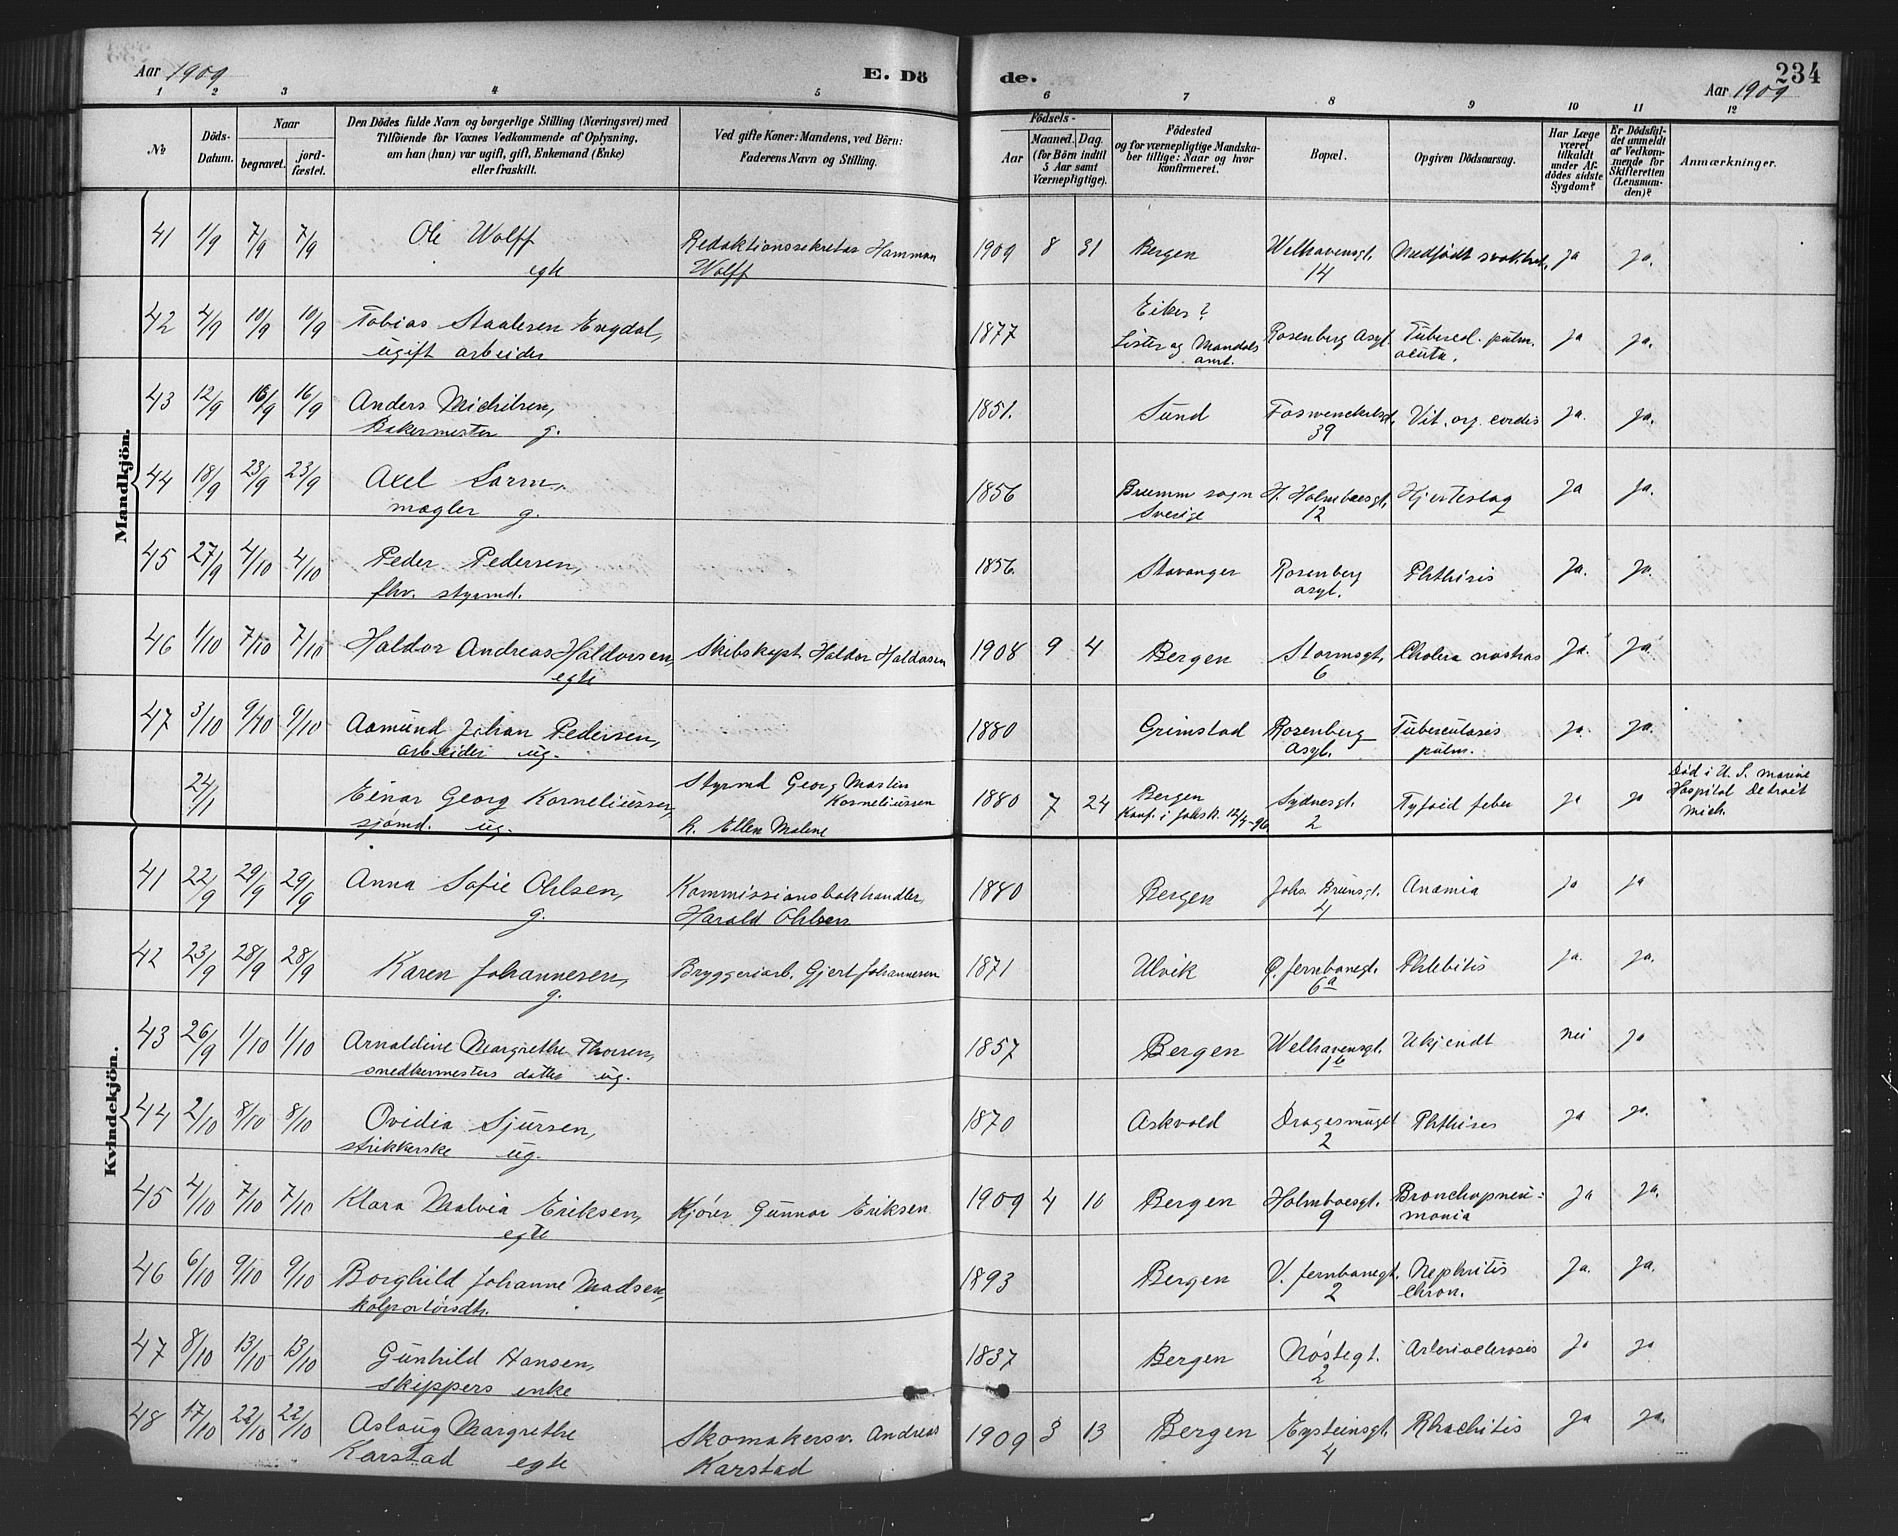 Aar 1909
E. Dö
de.
234
Aar 1909
1 2 3 4 5 6 7 8 9 10 11 12
№
Döds-Datum.
Naar
begravet.
jord-fæstet.
Den Dödes fulde Navn og borgerlige Stilling (Næringsvei) med
Tilföiende for Voxnes Vedkommende af Oplysning,
om han (hun) var ugift, gift, Enkemand (Enke)
eller fraskilt.
Ved gifte Koner: Mandens, ved Börn:
Faderens Navn og Stilling.
Födsels-
Aar
Maaned. Dag.
(for Börn indtil
5 Aar samt
Værnepligtige).
Födested
og for værnepligtige Mandska-
ber tillige: Naar og hvor
konfirmeret.
Bopæl.
Opgiven Dödsaarsag.
Har Læge
været
tilkaldt
under Af-
dödes sidste
Sygdom?
Er Dödsfal-
det anmeldt
af Vedkom-
mende for
Skifteretten
(Lensman-
den)?
Anmærkninger.
Mandkjön.
41 1/9 7/9 7/9 Ole Wolff Redaktionssekretær Hamman 1909 8 31 Bergen Welhavensgt. Medfödt svakhet. ja ja.
egte Wolff 14
42 4/9 10/9 10/9 Tobias Staalesen Engdal, 1877 Eiker? Rosenberg Asyl. Tubercul. pulm. ja ja.
ugift arbeider Lister og Mandals amt. acuta.
43 12/9 16/9 16/9 Anders Michelsen, 1851. Sund Foswenckelsgt. Vit. org. cordis ja. ja.
Bakermester g. 39
44 18/9 23/9 23/9 Axel 1856 sogn H. Holmboesgt. Hjerteslag ja ja.
mægler g. Sverige 12
45 27/9 4/10 4/10 Peder Pedersen, 1856. Stavanger Rosenberg Phthisis ja. ja.
fhv. styrmd. asyl.
46 1/10 7/10 7/10 Haldor Andreas Haldorsen, Skibskapt. Haldor Haldorsen 1908 9 4 Bergen Stormsgt. Cholera nostras ja. ja
egte 6
47 3/10 9/10 9/10 Aamund Johan Pedersen, 1880 Grimstad Rosenberg Tuberculosis ja. ja.
arbeider ug. Asyl. pulm.
24/1 Einar Georg Korneliussen, Styrmd Georg Martin Korneliussen 1880 7 24 Bergen Sydnesgt. Tyfoid feber ja ja Död i U. S. marine
sjömd. ug. h. Ellen Malene Konf. i Johsk. 12/4-96 2 Hospital Detroit Mich.
Kvindekjön.
41 22/9 29/9 29/9 Anna Sofie Ohlsen, Kommissionsbokhandler 1880 Bergen Johs. Brunsgt. Anæmia ja ja
g. Harald Ohlsen 4
42 23/9 28/9 28/9 Karen Johannesen, Bryggeriarb. Gjert Johannesen 1871 Ulvik Ö. Jernbanegt. Phlebitis ja. ja.
g. 6a
43 26/9 1/10 1/10 Arnoldine Margrethe Thorsen, 1857 Bergen Welhavensgt. Ukjendt nei ja
snedkermesters datter ug.
44 2/10 8/10 8/10 Ovidia Sjursen, 1870 Askvold Dragesmuget Phthisis ja ja.
strikkerske ug. 2
45 4/10 7/10 7/10 Klara Malvia Eriksen, Kjörer Gunnar Eriksen 1909 4 10 Bergen Holmboesgt. Bronchopneu- ja ja.
egte 9 monia
46 6/10 9/10 9/10 Borghild Johanne Madsen, 1893 Bergen V. Jernbanegt. Nephritis ja. ja.
kolportörsdtr. 2 Chron.
47 8/10 13/10 13/10 Gunhild Hansen, 1837 Bergen Nöstegt. Arteriosclerosis ja ja
skippers enke 2
48 17/10 22/10 22/10 Aslaug Margrethe Skomakersv. Andreas 1909 3 13 Bergen Eysteinsgt. Rhachitis ja ja.
Karstad egte Karstad 4